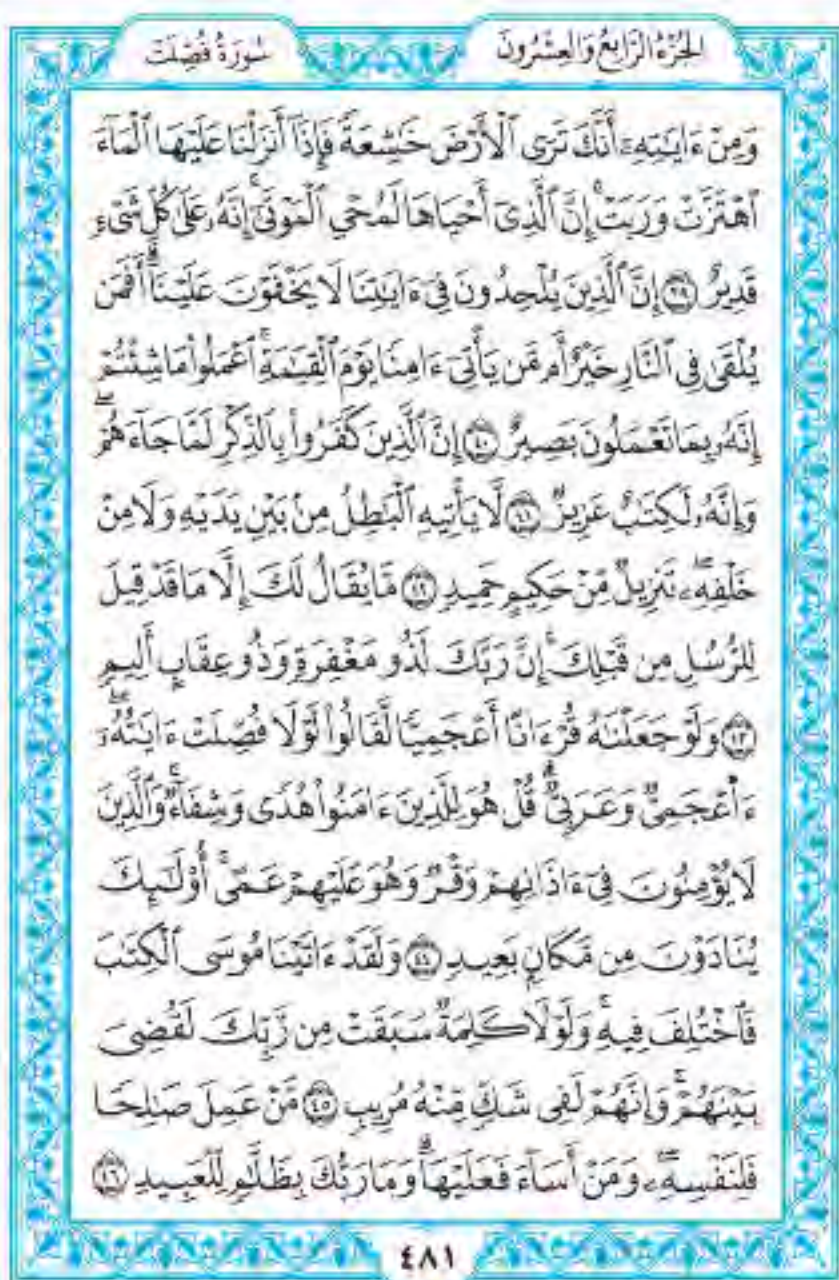 الجزء الرابع والعشرون
سورة فصلت
وَمِنْ ءَايَٰتِهِۦٓ أَنَّكَ تَرَى ٱلْأَرْضَ خَٰشِعَةً فَإِذَآ أَنزَلْنَا عَلَيْهَا ٱلْمَآءَ
ٱهْتَزَّتْ وَرَبَتْ ۚ إِنَّ ٱلَّذِىٓ أَحْيَاهَا لَمُحْىِ ٱلْمَوْتَىٰٓ ۚ إِنَّهُۥ عَلَىٰ كُلِّ شَىْءٍ
قَدِيرٌ ٣٩ إِنَّ ٱلَّذِينَ يُلْحِدُونَ فِىٓ ءَايَٰتِنَا لَا يَخْفَوْنَ عَلَيْنَآ ۗ أَفَمَن
يُلْقَىٰ فِى ٱلنَّارِ خَيْرٌ أَم مَّن يَأْتِىٓ ءَامِنًا يَوْمَ ٱلْقِيَٰمَةِ ۚ ٱعْمَلُوا۟ مَا شِئْتُمْ ۖ
إِنَّهُۥ بِمَا تَعْمَلُونَ بَصِيرٌ ٤٠ إِنَّ ٱلَّذِينَ كَفَرُوا۟ بِٱلذِّكْرِ لَمَّا جَآءَهُمْ ۖ
وَإِنَّهُۥ لَكِتَٰبٌ عَزِيزٌ ٤١ لَّا يَأْتِيهِ ٱلْبَٰطِلُ مِنۢ بَيْنِ يَدَيْهِ وَلَا مِنْ
خَلْفِهِۦ ۖ تَنزِيلٌ مِّنْ حَكِيمٍ حَمِيدٍ ٤٢ مَّا يُقَالُ لَكَ إِلَّا مَا قَدْ قِيلَ
لِلرُّسُلِ مِن قَبْلِكَ ۚ إِنَّ رَبَّكَ لَذُو مَغْفِرَةٍ وَذُو عِقَابٍ أَلِيمٍ
٤٣ وَلَوْ جَعَلْنَٰهُ قُرْءَانًا أَعْجَمِيًّا لَّقَالُوا۟ لَوْلَا فُصِّلَتْ ءَايَٰتُهُۥٓ ۖ
ءَا۬عْجَمِىٌّ وَعَرَبِىٌّ ۗ قُلْ هُوَ لِلَّذِينَ ءَامَنُوا۟ هُدًى وَشِفَآءٌ ۖ وَٱلَّذِينَ
لَا يُؤْمِنُونَ فِىٓ ءَاذَانِهِمْ وَقْرٌ وَهُوَ عَلَيْهِمْ عَمًى ۚ أُو۟لَٰٓئِكَ
يُنَادَوْنَ مِن مَّكَانٍۭ بَعِيدٍ ٤٤ وَلَقَدْ ءَاتَيْنَا مُوسَى ٱلْكِتَٰبَ
فَٱخْتُلِفَ فِيهِ ۗ وَلَوْلَا كَلِمَةٌ سَبَقَتْ مِن رَّبِّكَ لَقُضِىَ
بَيْنَهُمْ ۚ وَإِنَّهُمْ لَفِى شَكٍّ مِّنْهُ مُرِيبٍ ٤٥ مَّنْ عَمِلَ صَٰلِحًا
فَلِنَفْسِهِۦ ۖ وَمَنْ أَسَآءَ فَعَلَيْهَا ۗ وَمَا رَبُّكَ بِظَلَّٰمٍ لِّلْعَبِيدِ ٤٦
٤٨١